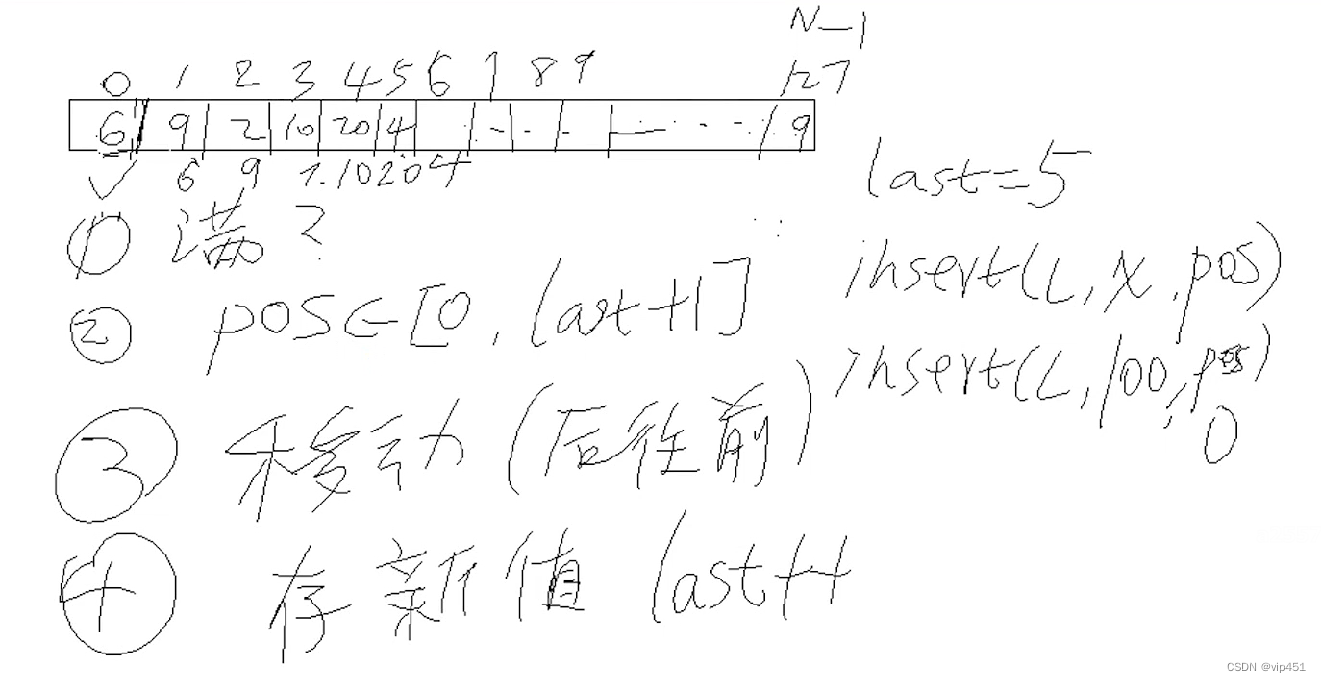 N-1
0 1 2 3 4 5 6 7 8 9 127
6 9 2 10 20 4 9
6 9 10 20 4
last=5
① 满?
insert(L, X, pos)
② pos∈[0, last+1]
insert(L, 100, pos)
0
③ 移动(后往前)
④ 存新值 last++
CSDN @vip451